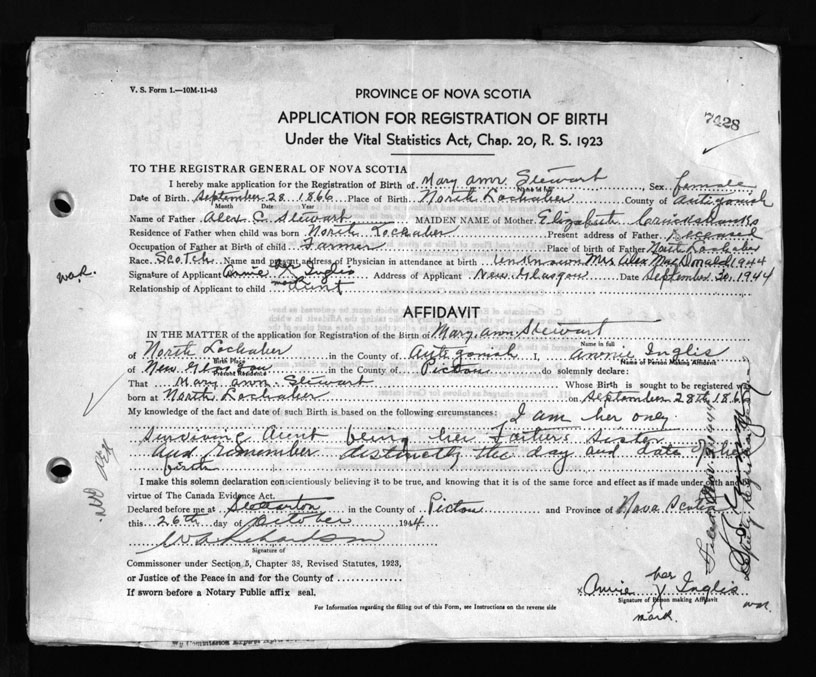 V. S. Form 1.—10M-11-43
PROVINCE OF NOVA SCOTIA
7428
APPLICATION FOR REGISTRATION OF BIRTH
Under the Vital Statistics Act, Chap. 20, R. S. 1923
TO THE REGISTRAR GENERAL OF NOVA SCOTIA
I hereby make application for the Registration of Birth of Mary ann Stewart, Sex female
Name in full
Date of Birth September 28 1866 Place of Birth North Lochaber County of Antigonish
Month Date Year
Name of Father Alex C. Stewart MAIDEN NAME of Mother Elizabeth Cruickshanks
Residence of Father when child was born North Lochaber Present address of Father Deceased
Occupation of Father at Birth of child Farmer Place of birth of Father North Lochaber
Race Scotch Name and present address of Physician in attendance at birth unknown Mrs Alex MacDonald 1944
Signature of Applicant Annie her X Inglis Address of Applicant New Glasgow Date September 30, 1944
mark
Relationship of Applicant to child Aunt
AFFIDAVIT
IN THE MATTER of the application for Registration of the Birth of Mary ann Stewart
Name in full
of North Lochaber in the County of Antigonish I, Annie Inglis
Birth Place Name of Person Making Affidavit
of New Glasgow in the County of Pictou do solemnly declare:
Present Residence
That Mary ann Stewart Whose Birth is sought to be registered was
born at North Lochaber on September 28th 1866
My knowledge of the fact and date of such Birth is based on the following circumstances: I am her only
surviving Aunt being her Father's Sister
and remember distinctly the day and date of her
birth
I make this solemn declaration conscientiously believing it to be true, and knowing that it is of the same force and effect as if made under oath and
virtue of The Canada Evidence Act.
Declared before me at Stellarton in the County of Pictou and Province of Nova Scotia
this 26th day of October 1944
W A Richardson
Signature of
Commissioner under Section 5, Chapter 38, Revised Statutes, 1923,
or Justice of the Peace in and for the County of
If sworn before a Notary Public affix seal.
x Annie her X Inglis
Signature of Person making Affidavit
mark
For Information regarding the filling out of this Form, see Instructions on the reverse side